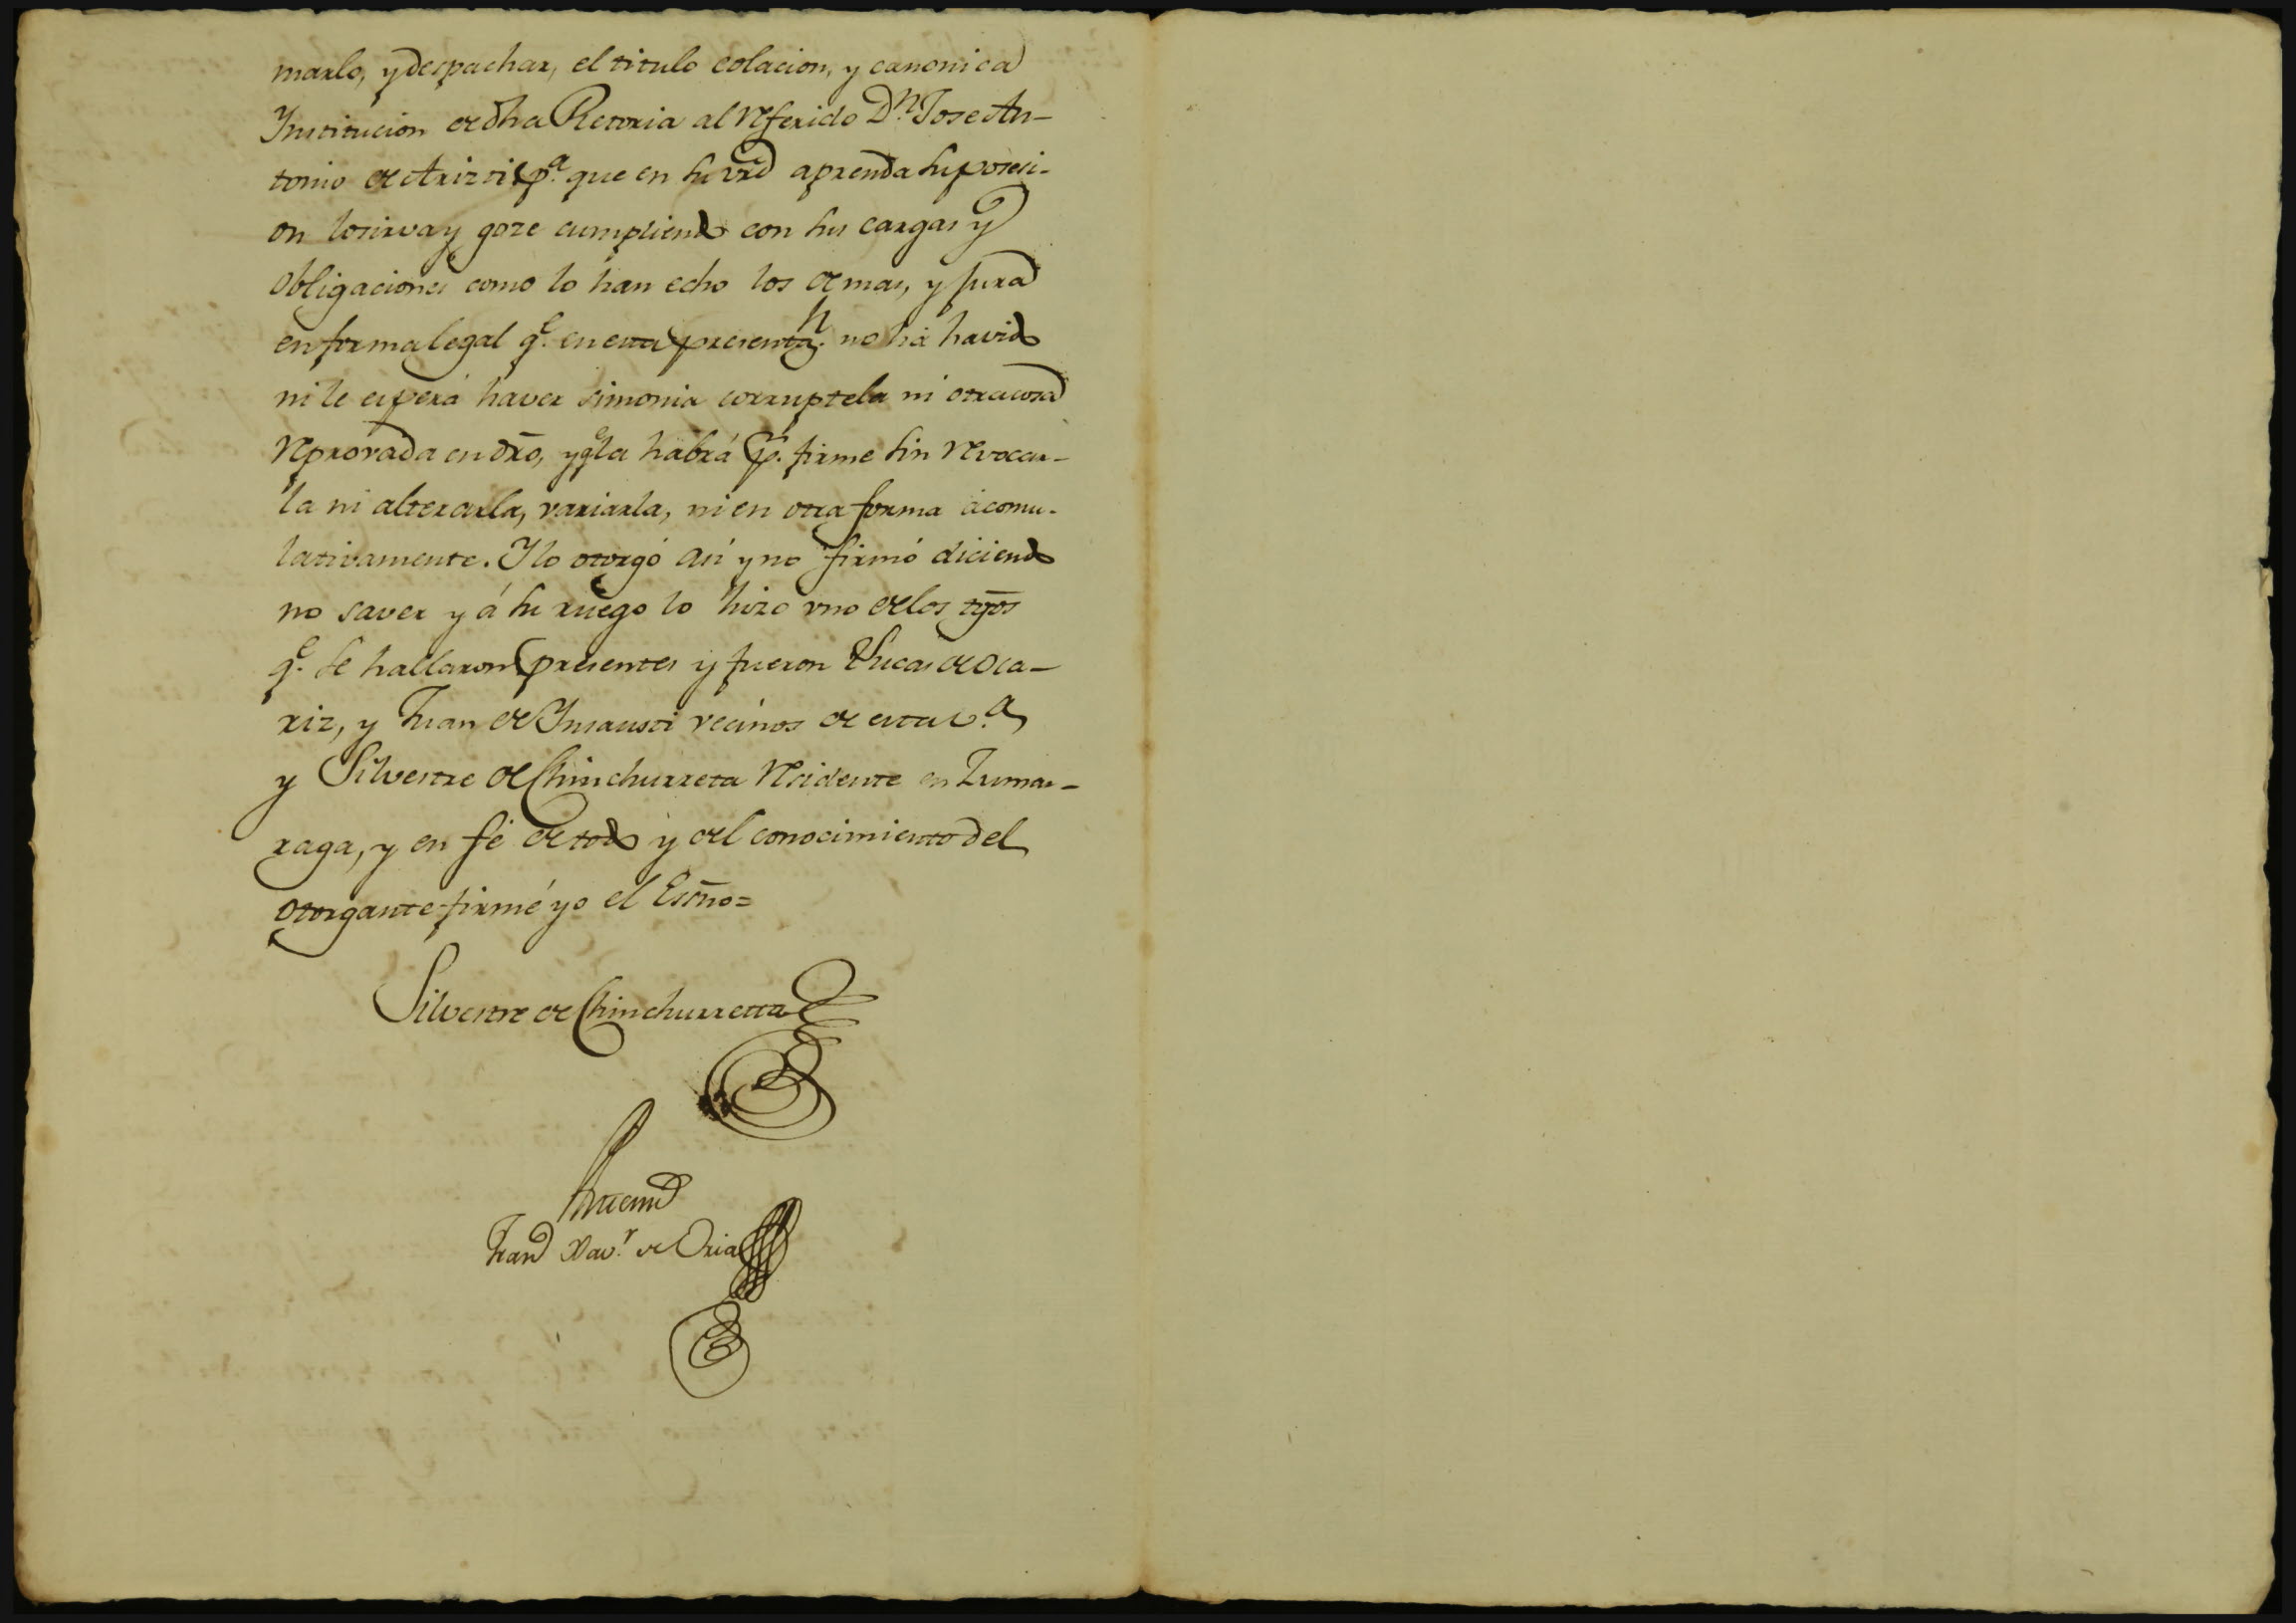 marlo, y despachar, el titulo colacion, y canonica
Institucion de dha Retoria al referido Dn. Jose An-
tonio de Arizti pa. que en su vrd aprenda su posesi-
on lo sirva y goze cumpliendo con sus cargas y
obligaciones como lo han echo los demas, y jura
en forma legal qe. en esta presentan. no ha havido
ni se espera haver simonia corruptela ni otra cosa
reprovada en dro, y qe la habrá pr. firme sin revocar-
la ni alterarla, variarla, ni en otra forma acomu-
lativamente. Y lo otorgó asi y no firmó diciendo
no saver y á su ruego lo hizo uno de los tgos
qe. se hallaron presentes y fueron Lucas de Oca-
riz, y Juan de Insausti vecinos de esta va.
y Silvestre de Chinchurreta residente en Zumar-
raga, y en fé de todo y del conocimiento del
otorgante firmé yo el Esno=
Silvestre de Chinchurreta
Antemi
Franco Xavr. de Oria